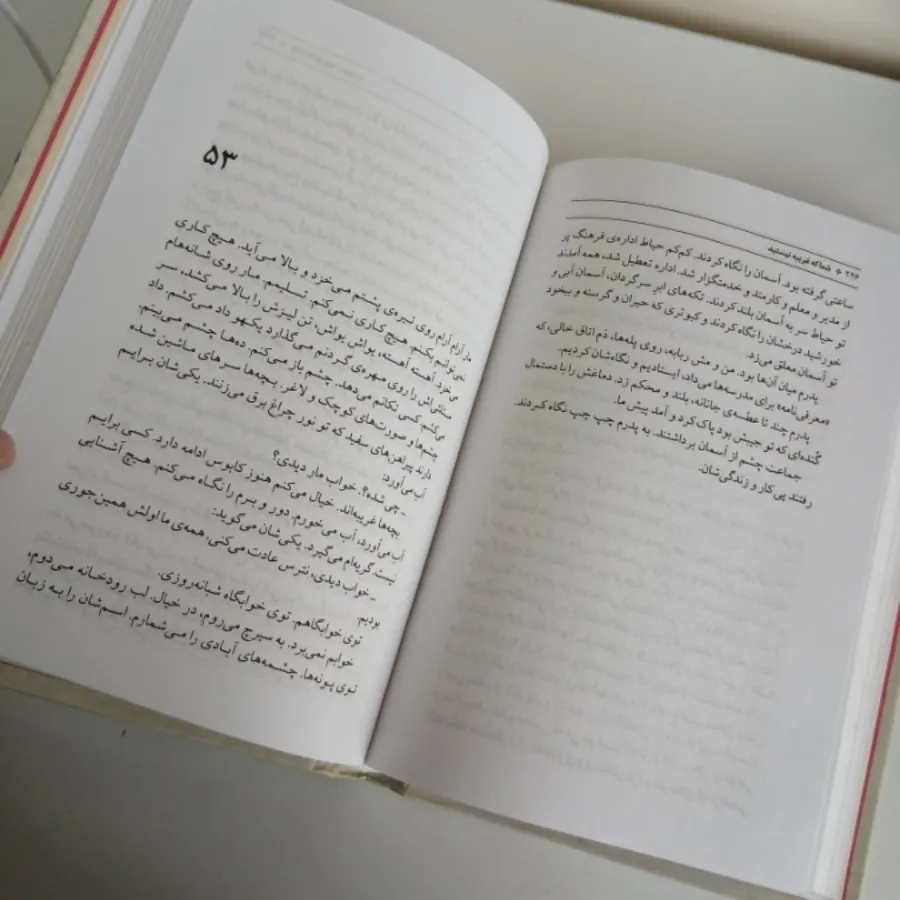 ۲۲۴ * شما که غریبه نیستید
ساعتی گرفته بود. آسمان را نگاه کردند. کم‌کم حیاط اداره‌ی فرهنگ پر
از مدیر و معلم و کارمند و خدمتگزار شد. اداره تعطیل شد، همه آمدند
تو حیاط سر به آسمان بلند کردند. تکه‌های ابرِ سرگردان، آسمان آبی و
خورشید درخشان را نگاه کردند و کبوتری که حیران و گرسنه و بیخود
تو آسمان معلق می‌زد.
پدرم میان آن‌ها بود. من و مش ربابه، روی پله‌ها، دَم اتاق خالی، که
«معرفی‌نامه» برای مدرسه‌ها می‌داد، ایستادیم و نگاه‌شان کردیم.
پدرم چند تا عطسه‌ی جانانه، بلند و محکم زد. دماغش را با دستمال
گُنده‌ای که تو جیبش بود پاک کرد و آمد پیش ما.
جماعت چشم از آسمان برداشتند. به پدرم چپ چپ نگاه کردند.
رفتند پی کار و زندگی‌شان.
۵۳
مار آرام آرام روی تیره‌ی پشتم می‌خزد و بالا می‌آید. هیچ کاری
نمی‌توانم بکنم. هیچ کاری نمی‌کنم. تسلیمم. مار روی شانه‌هام
می‌خزد. آهسته آهسته، یواش یواش، تن لیزش را بالا می‌کشد، سر
مثلثی‌اش را روی مهره‌ی گردنم می‌گذارد یکهو داد می‌کشم. داد
می‌کشم. کسی تکانم می‌دهد. چشم باز می‌کنم. ده‌ها چشم می‌بینم.
چشم‌ها و صورت‌های کوچک و لاغر. بچه‌ها سرهای ماشین شده
دارند پیراهن‌های سفید که تو نور چراغ برق می‌زنند. یکی‌شان برایم
آب می‌آورد:
ـ چی شده؟. خواب مار دیدی؟
بچه‌ها غریبه‌اند. خیال می‌کنم هنوز کابوس ادامه دارد. کسی برایم
آب می‌آورد، آب می‌خورم. دور و برم را نگاه می‌کنم. هیچ آشنایی
نیست. گریه‌ام می‌گیرد. یکی‌شان می‌گوید:
ـ خواب دیدی، نترس عادت می‌کنی. همه‌ی ما اولش همین‌جوری
بودیم.
توی خوابگاهم. توی خوابگاه شبانه‌روزی.
خوابم نمی‌برد. به سیرچ می‌روم، در خیال. لب رودخانه می‌دوم،
توی پونه‌ها. چشمه‌های آبادی را می‌شمارم. اسم‌شان را به زبان